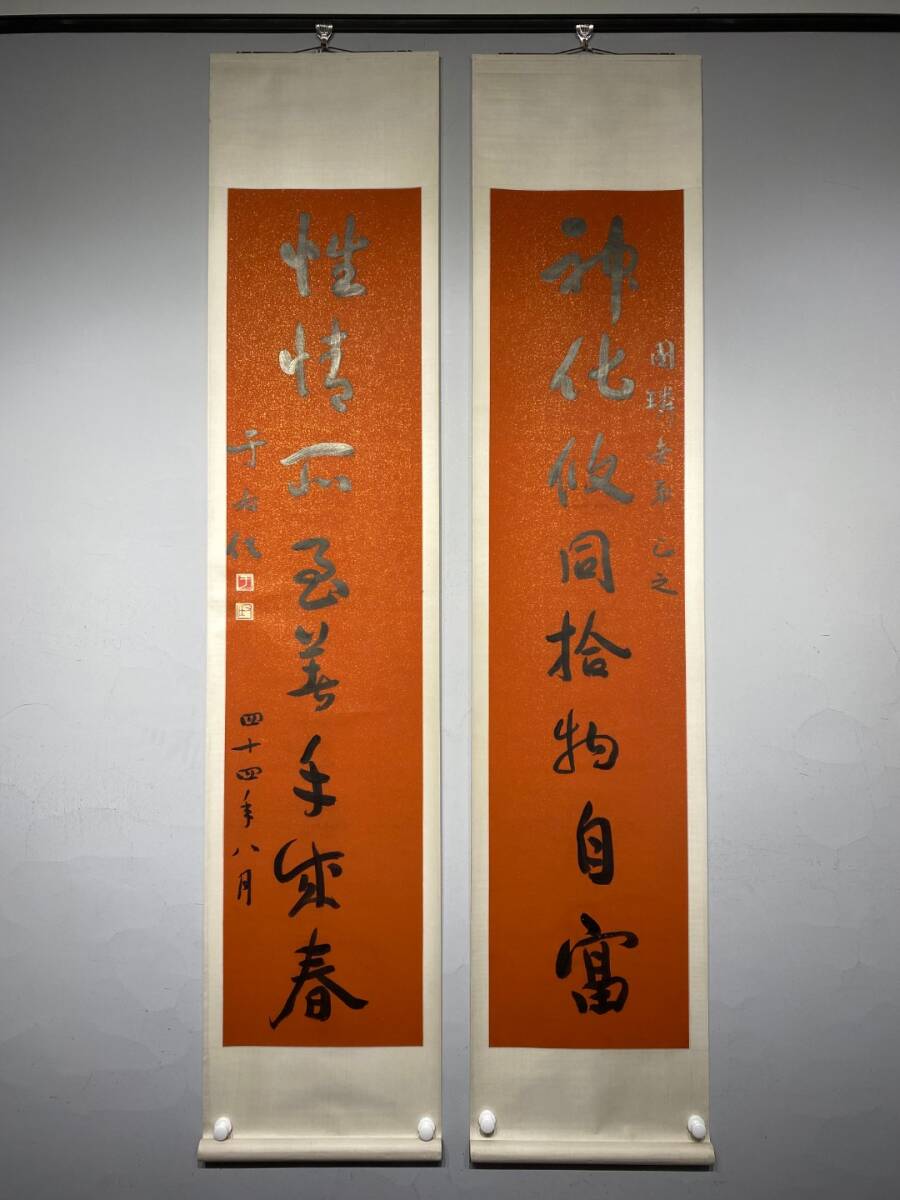 神化攸同拾物自富
國璘老弟正之
性情所至著手成春
于右任
四十四年八月